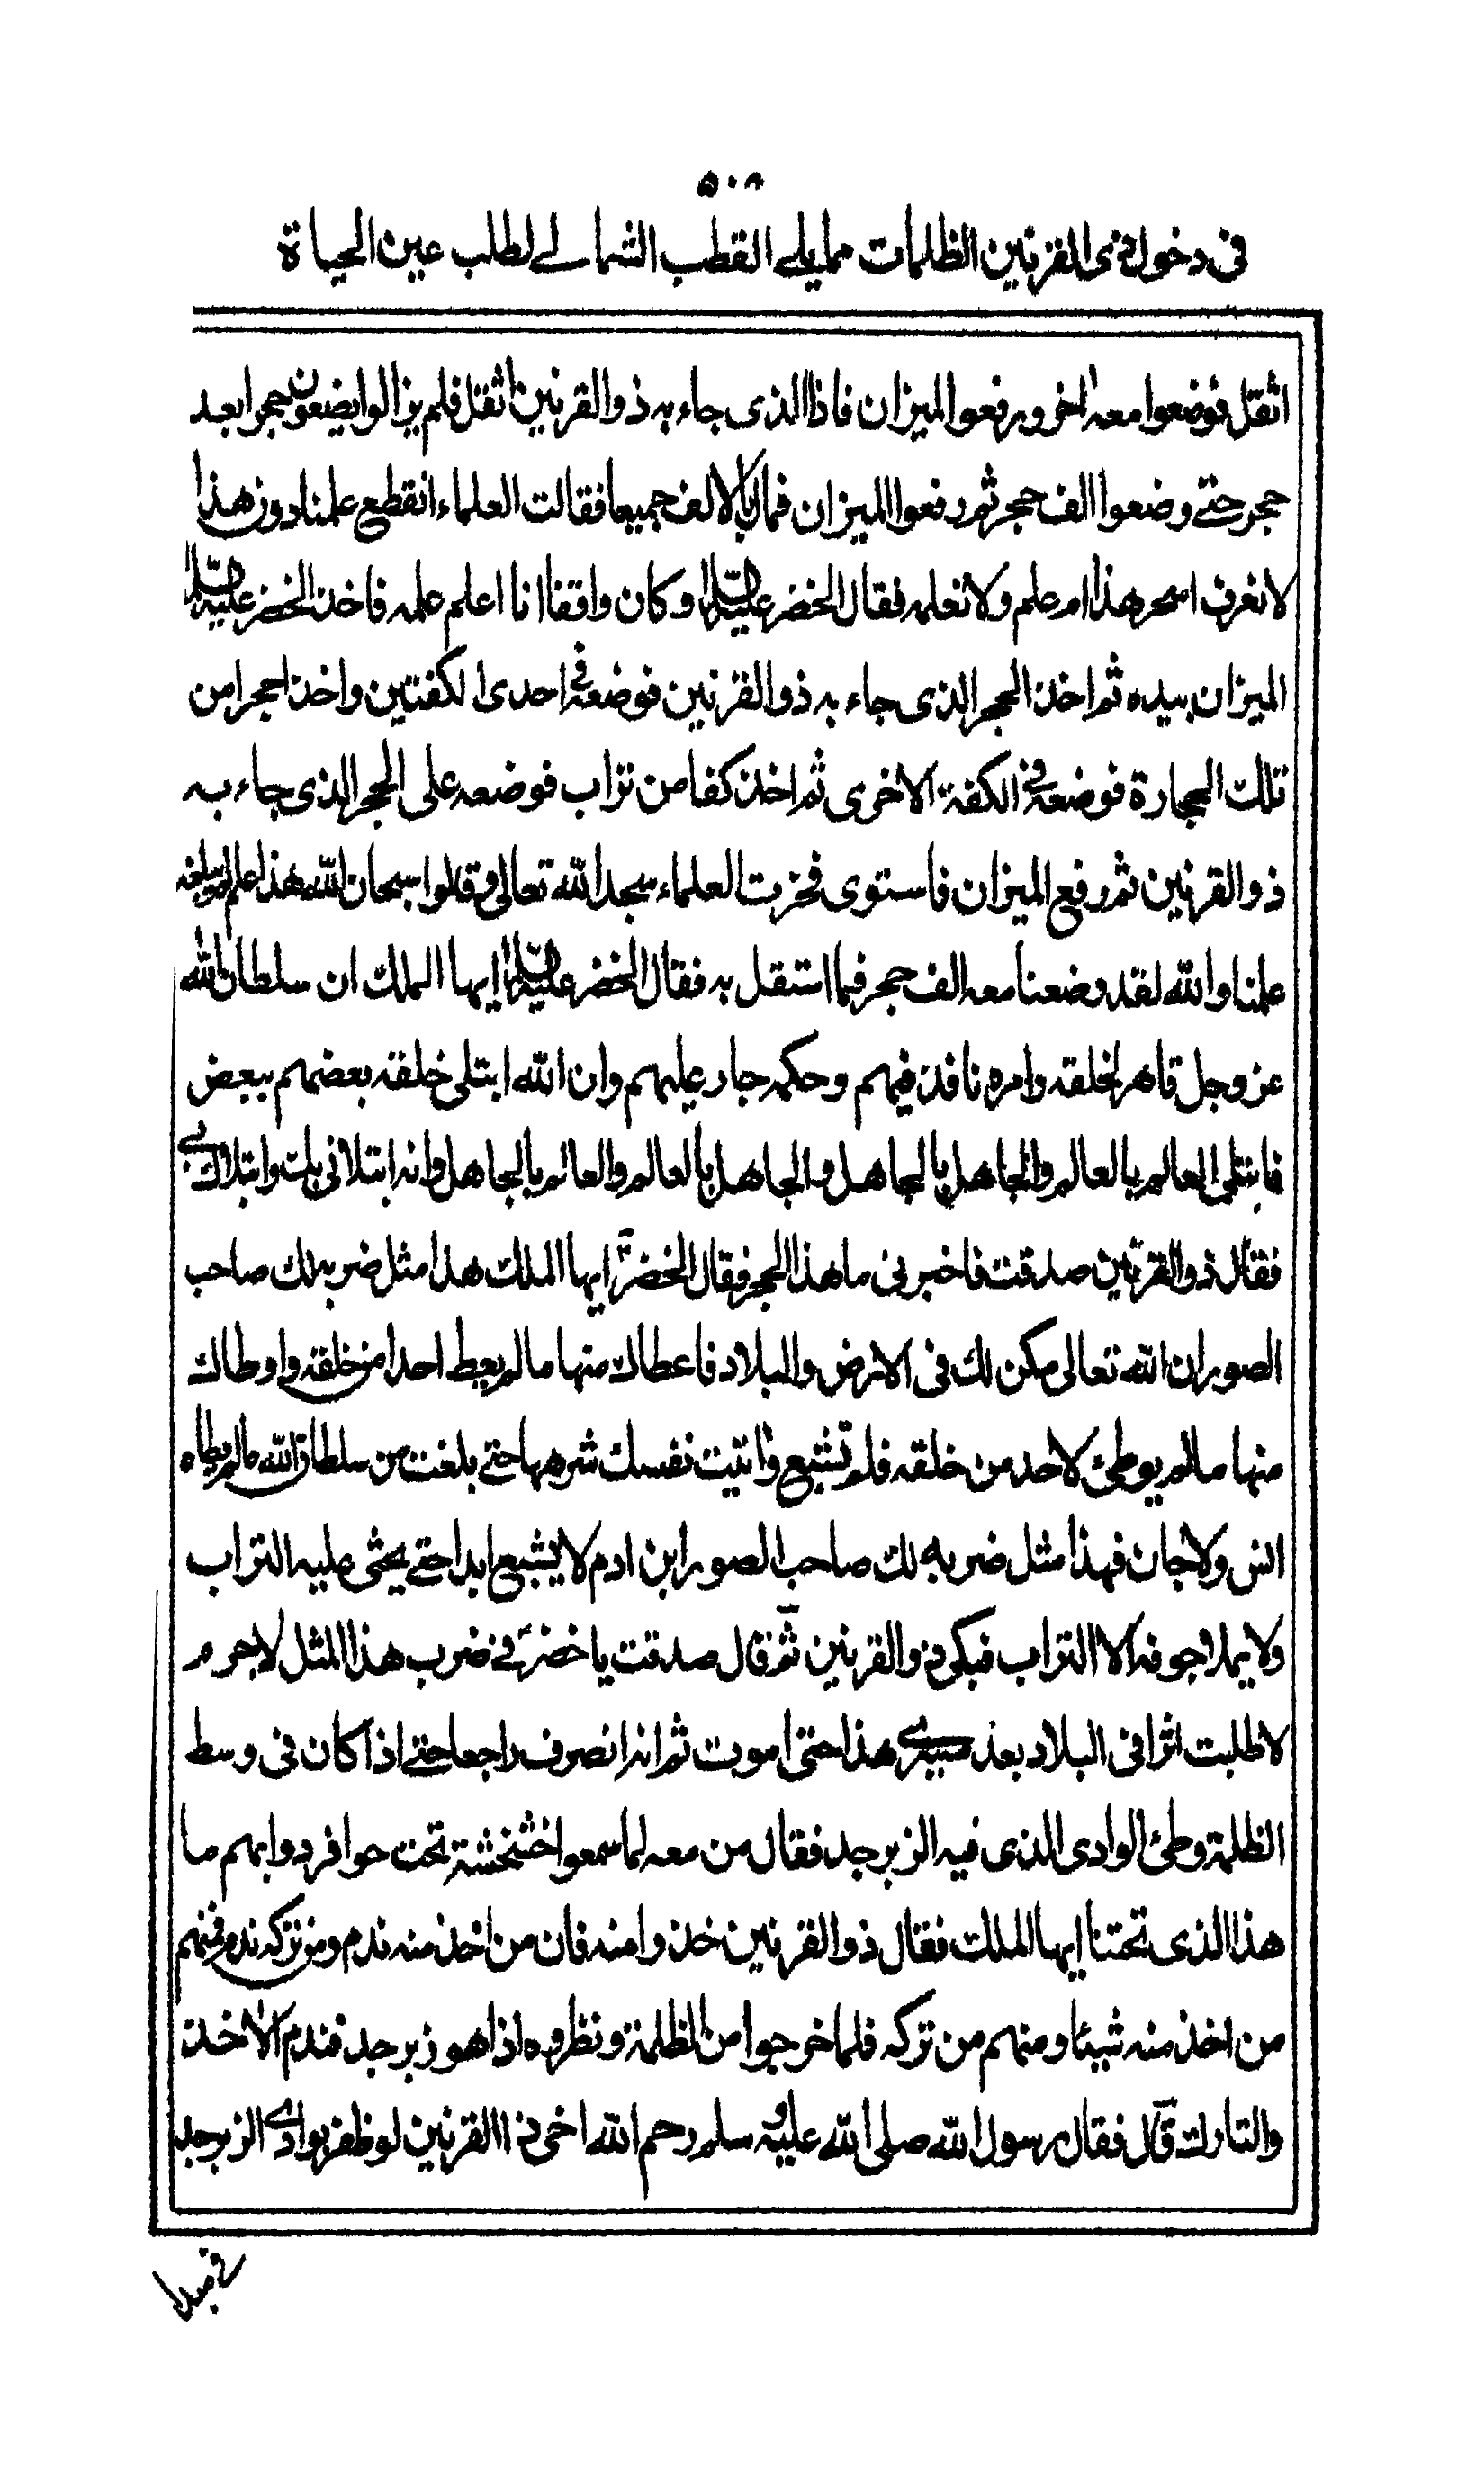 ٥٠٨
في دخول ذي القرنين الظلمات مما يلي القطب الشمالي لطلب عين الحياة
اثقل فوضعوا معه اخر ورفعوا الميزان فاذا الذي جاء به ذو القرنين اثقل فلم يزالوا يضعون حجرا بعد
حجر حتى وضعوا الف حجر ثم رفعوا الميزان فمال بالالف جميعا فقالت العلماء انقطع علمنا دون هذا
لا نعرف اسحر هذا ام علم ولا نعلمه فقال الخضر عليه السلام وكان واقفا انا اعلم علمه فاخذ الخضر عليه السلام
الميزان بيده ثم اخذ الحجر الذي جاء به ذو القرنين فوضعه في احدى الكفتين واخذ حجرا من
تلك الحجارة فوضعه في الكفة الاخرى ثم اخذ كفا من تراب فوضعه على الحجر الذي جاء به
ذو القرنين ثم رفع الميزان فاستوى فخرت العلماء سجدا لله تعالى وقالوا سبحان الله هذا علم لم يبلغه
علمنا والله لقد وضعنا معه الف حجر فما استقل به فقال الخضر عليه السلام ايها الملك ان سلطان الله
عز وجل قاهر لخلقه وامره نافذ فيهم وحكمه جار عليهم وان الله ابتلى خلقه بعضهم ببعض
فابتلى العالم بالعالم والجاهل بالجاهل والجاهل بالعالم والعالم بالجاهل وانه ابتلاني بك وابتلاك بي
فقال ذو القرنين صدقت فاخبرني ما هذا الحجر فقال الخضر ايها الملك هذا مثل ضربه لك صاحب
الصور ان الله تعالى مكن لك في الارض والبلاد فاعطاك منها ما لم يعط احدا من خلقه واوطاك
منها ما لم يوطئ لاحد من خلقه فلم تشبع واتيت نفسك شرهها حتى بلغت من سلطان الله ما لم يطاه
انس ولا جان فهذا مثل ضربه لك صاحب الصور ابن ادم لا يشبع ابدا حتى يحثى عليه التراب
ولا يملا جوفه الا التراب فبكى ذو القرنين ثم قال صدقت يا خضر في ضرب هذا المثل لا جرم
لا طلبت اثرا في البلاد بعد مسيري هذا حتى اموت ثم انه انصرف راجعا حتى اذا كان في وسط
الظلمة وطئ الوادي الذي فيه الزبرجد فقال من معه لما سمعوا خشخشة تحت حوافر دوابهم ما
هذا الذي تحتنا ايها الملك فقال ذو القرنين خذوا منه فان من اخذ منه ندم ومن تركه ندم فمنهم
من اخذ منه شيئا ومنهم من تركه فلما خرجوا من الظلمة ونظروه اذا هو زبرجد فندم الاخذ
والتارك قال فقال رسول الله صلى الله عليه وسلم رحم الله اخي ذا القرنين لو ظفر بوادي الزبرجد